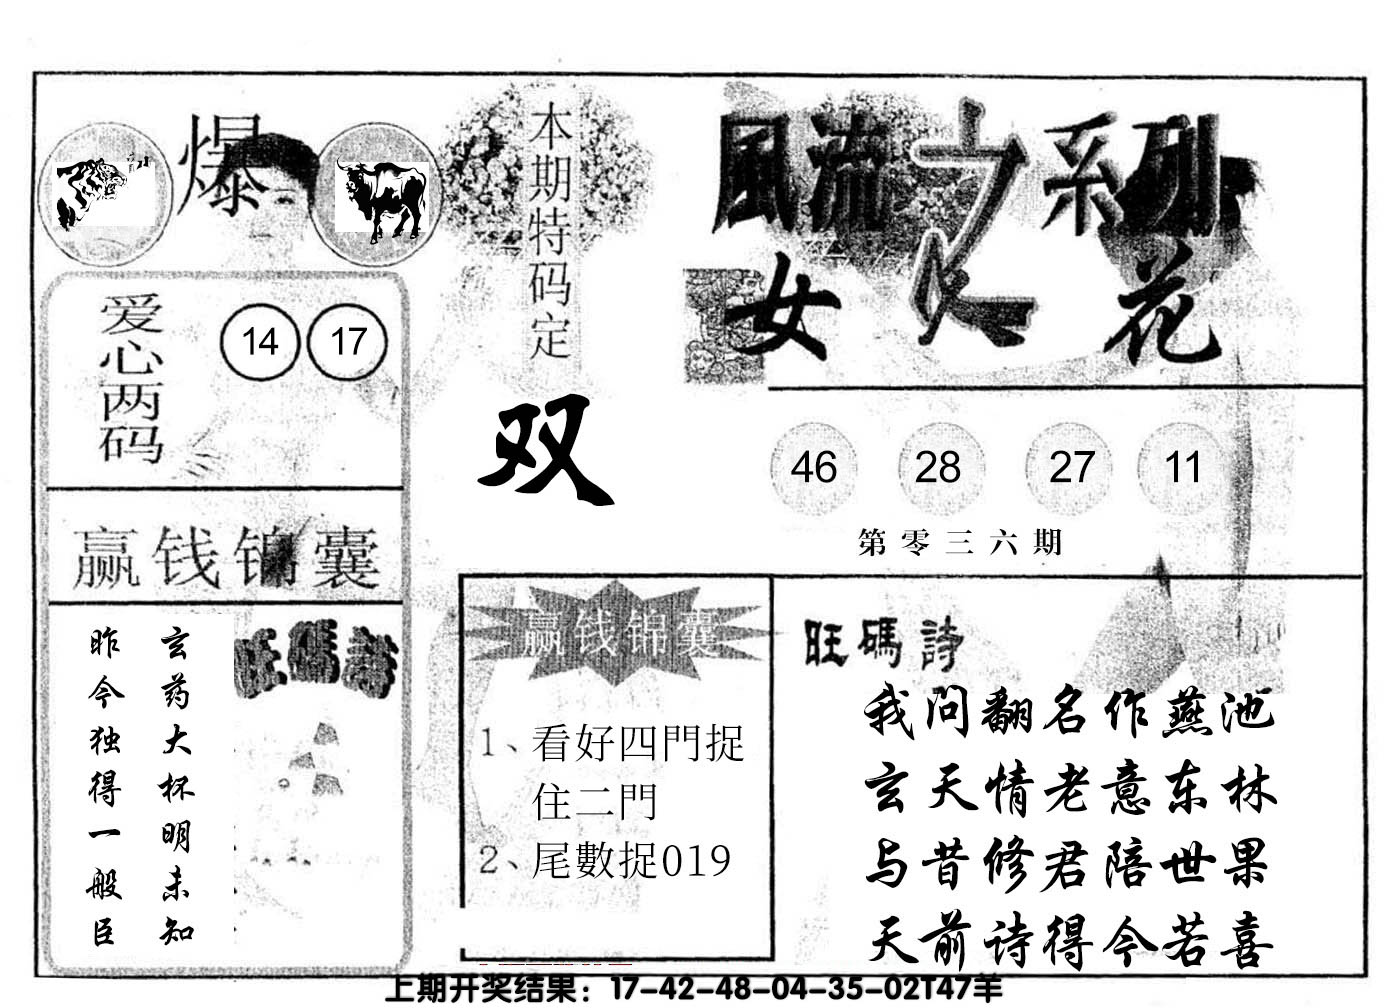 爆
爱心两码
14 17
赢钱锦囊
玄药大杯明未知
昨今独得一般臣
旺碼詩
本期特码定
双
風流之系列
女人花
46 28 27 11
第零三六期
赢钱锦囊
1、看好四門捉
住二門
2、尾數捉019
旺碼詩
我问翻名作燕池
玄天情老意东林
与昔修君陪世果
天前诗得今若喜
上期开奖结果：17-42-48-04-35-02T47羊